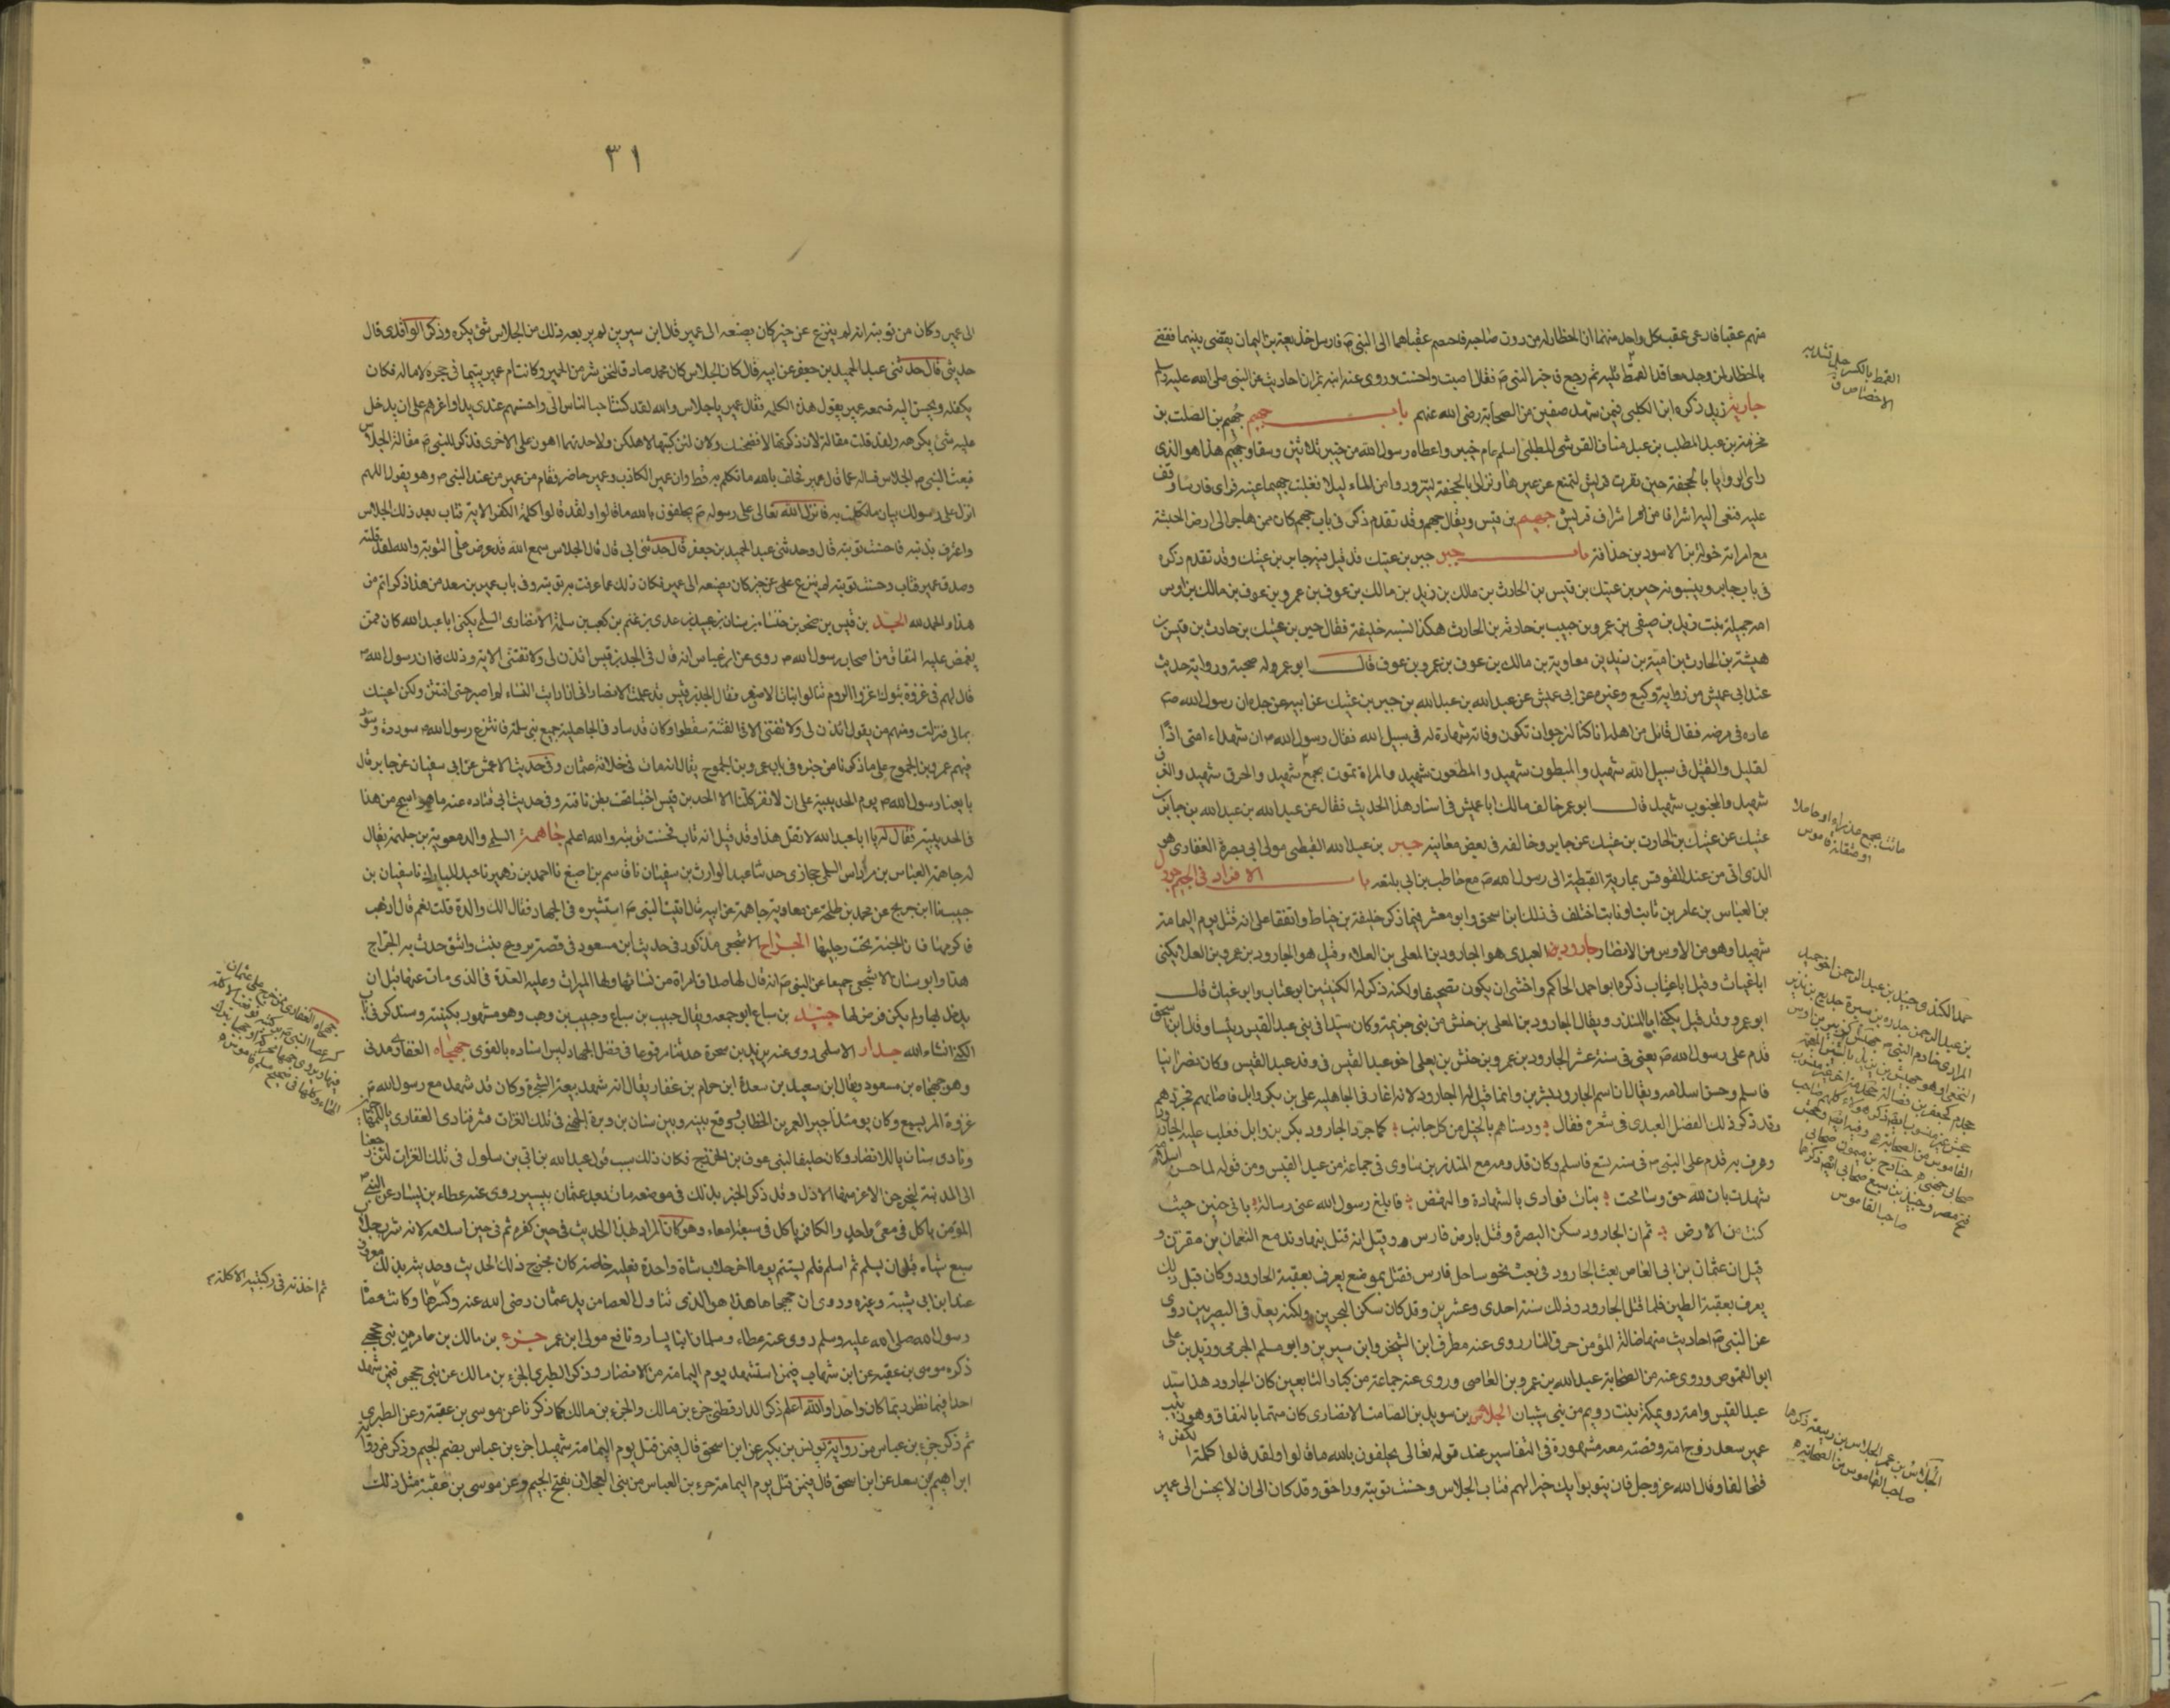 منهم عقبا فادعى عقب كل واحد منهما ان الحظار له من دون صاحبه فاختصم عقباهما الى النبي فارسل حذيفة بن اليمان يقضى بينهما فقضى
بالحظار لمن وجد معاقد القمط تليه ثم رجع فاخبر النبي فقال اصبت واحسنت وروى عنه ابنه نمران احاديث عن النبي صلى الله عليه وسلم
جارية زيد ذكره ابن الكلبي فيمن شهد صفين من الصحابة رضى الله عنهم باب جهيم جهيم بن الصلت بن
مخرمة بن عبد المطلب بن عبد مناف القرشى المطلبى اسلم عام خيبر واعطاه رسول الله من خيبر ثلاثين وسقا وجهيم هذا هو الذى
راى الرويا بالجحفة حين نفرت قريش لتمنع عن عيرها ونزلوا بالجحفة ليتزودوا من الماء ليلا فغلبت جهيما عينه فراى فارسا وقف
عليه فنعى اليه اشرافا من اشراف قريش جهيم بن قيس ويقال جهم وقد تقدم ذكره فى باب جهم كان ممن هاجر الى ارض الحبشة
مع امراته خولة بنت الاسود بن حذافة باب جبر جبر بن عتيك قد قيل فيه جابر بن عتيك وقد تقدم ذكره
فى باب جابر وينسبونه جبر بن عتيك بن قيس بن الحارث بن مالك بن زيد بن مالك بن عوف بن عمرو بن عوف بن مالك بن اوس
امه جميلة بنت زيد بن صيفى بن عمرو بن حبيب بن حارثة بن الحارث هكذا نسبه خليفة فقال جبر بن عتيك بن حارث بن قيس بن
هيشة بن الحارث بن امية بن زيد بن معاوية بن مالك بن عوف بن عمرو بن عوف قال ابو عمر وله صحبة ورواية حديثه
عند ابى عميس من رواية وكيع وغيره عن ابى عميس عن عبد الله بن عبد الله بن جبر بن عتيك عن ابيه عن جده ان رسول الله
عاده فى مرضه فقال قائل من اهله انا كنا لنرجو ان تكون وفاته شهادة له فى سبيل الله فقال رسول الله ان شهداء امتى اذا
لقليل والقتيل فى سبيل الله شهيد والمبطون شهيد والمطعون شهيد والمراة تموت بجمع شهيد والحرق شهيد والغرق
شهيد والمجنوب شهيد قال ابو عمر خالف مالك ابا عميس فى اسناد هذا الحديث فقال عن عبد الله بن عبد الله بن جابر بن
عتيك عن عتيك بن الحارث بن عتيك عن جابر وخالفه فى بعض معانيه جبر بن عبد الله القبطى مولى ابى بصرة الغفارى هو
الذى اتى من عند المقوقس بمارية القبطية الى رسول الله مع حاطب بن ابى بلتعه باب الافراد فى الجيم جرول
بن العباس بن عامر بن ثابت او نابت اختلف فى ذلك ابن اسحق وابو معشر فيما ذكر خليفة بن خياط واتفقا على انه قتل يوم اليمامة
شهيدا وهو من الاوس من الانصار جارود بن العبدى هو الجارود بن المعلى بن العلاء وقيل هو الجارود بن عمرو بن العلا يكنى
ابا غياث وقيل ابا عتاب ذكره ابو احمد الحاكم واخشى ان يكون تصحيفا ولكنه ذكر له الكنيتين ابو عتاب وابو غياث قال
ابو عمرو وقد قيل يكنى ابا المنذر ويقال الجارود بن المعلى بن حنش من بنى جذيمة وكان سيدا فى بنى عبد القيس رئيسا وقال ابن اسحق
قدم على رسول الله يعنى فى سنة عشر الجارود بن عمرو بن حنش بن يعلى اخو عبد القيس فى وفد عبد القيس وكان نصرانيا
فاسلم وحسن اسلامه ويقال ان اسم الجارود بشر بن وانما قيل له الجارود لانه اغار فى الجاهلية على بن بكر وابل فاصابهم فجردهم
وقد ذكر ذلك الفضل العبدى فى شعره فقال ودسناهم بالخيل من كل جانب كما جرد الجارود بكر بن وابل فغلب عليه الجارود
وعرف به قدم على النبى فى سنة تسع فاسلم وكان قدومه مع المنذر بن ساوى فى جماعة من عبد القيس ومن قوله لما حسن اسلامه
شهدت بان الله حق وسامحت بنات فوادى بالشهادة والنهض فابلغ رسول الله عنى رسالة بانى حنيف حيث
كنت من الارض ثم ان الجارود سكن البصرة وقتل بارض فارس وقيل انه قتل بنهاوند مع النعمان بن مقرن و
قيل ان عثمان بن ابى العاص بعث الجارود فى بعث نحو ساحل فارس فقتل بموضع يعرف بعقبة الجارود وكان قبل ذلك
يعرف بعقبة الطين فلما قتل الجارود وذلك سنة احدى وعشرين وقد كان سكن البحرين ولكنه يعد فى البصريين روى
عن النبى احاديث منها ضالة المؤمن حرق النار روى عنه مطرف ابن الشخير وابن سيرين وابو مسلم الجرمى وزيد بن على
ابو القموص وروى عنه من الصحابة عبد الله بن عمرو بن العاصى وروى عنه جماعة من كبار التابعين كان الجارود هذا سيد
عبد القيس وامه دريمكة بنت رويم من بنى شيبان الجلاس بن سويد بن الصامت الانصارى كان متهما بالنفاق وهو ربيب
عمير بن سعد زوج امه وقصته معه مشهورة فى التفاسير عند قوله تعالى يحلفون بالله ما قالوا ولقد قالوا كلمة الكفر
فتحالفا وقال الله عز وجل فان يتوبوا يك خيرا لهم فتاب الجلاس وحسنت توبته وراجع الحق وقد كان الى ان لا يحسن الى عمير
القمط بالكسر حبل تشد به
الاخصاص ق
ماتت بجمع عذراء او حاملا
او مثقلة قاموس
الجلاس بن عمير والجلاس بن ربيعة ذكرهما
صاحب القاموس من الصحابة
٣١
الى عمير وكان من توبته انه لم ينزع عن خير كان يصنعه الى عمير قال ابن سيرين لم ير بعد ذلك من الجلاس شئ يكره وذكر الواقدى قال
حدثنى قال حدثنى عبد الحميد بن جعفر عن ابيه قال كان الجلاس كان محمد صادقا لنحن شر من الحمير وكانت ام عمير يتيما فى حجره لا مال له فكان
يكفله ويحسن اليه فسمعه عمير يقول هذه الكلمة فقال عمير يا جلاس والله لقد كنت احب الناس الى واحسنهم عندى يدا واعزهم على ان يدخل
عليه شئ يكرهه ولقد قلت مقالة لان ذكرتها لافضحنك ولان كتمتها لاهلكن ولاحديهما اهون على من الاخرى فذكر للنبى مقالة الجلاس
فبعث النبى الى الجلاس فساله عما قال عمير فحلف بالله ما تكلم به قط وان عمير الكاذب وعمير حاضر فقام عمير من عند النبى وهو يقول اللهم
انزل على رسولك بيان ما تكلمت به فانزل الله تعالى على رسوله يحلفون بالله ما قالوا ولقد قالوا كلمة الكفر الاية فتاب بعد ذلك الجلاس
واعترف بذنبه فاحسنت توبته قال وحدثنى عبد الحميد بن جعفر قال حدثنى ابى قال قال الجلاس سمع الله قد عرض على التوبة والله لقد قلته
وصدق عمير فتاب وحسنت توبته لم ينزع عن خير كان يصنعه الى عمير فكان ذلك مما عرفت به توبته وفى باب عمير بن سعد من هذا ذكر اتم من
هذا والحمد لله الجد بن قيس بن صخر بن خنساء بن سنان بن عبيد بن عدى بن غنم بن كعب بن سلمة الانصارى السلمى يكنى ابا عبد الله كان ممن
يغمض عليه النفاق من اصحاب رسول الله روى عن ابن عباس انه قال فى الجد بن قيس ائذن لى ولا تفتنى الاية وذلك ان رسول الله
قال لهم فى غزوة تبوك اغزوا الروم تنالوا بنات الاصفر فقال الجد بن قيس قد علمت الانصار انى اذا رايت النساء لم اصبر حتى افتتن ولكن اعينك
بمالى فنزلت ومنهم من يقول ائذن لى ولا تفتنى الا فى الفتنة سقطوا وكان قد ساد فى الجاهلية جميع بنى سلمة فانتزع رسول الله سودده وسود
فيهم عمرو بن الجموح على ما ذكرنا من خبره فى باب عمرو بن الجموح يقال انه مات فى خلافة عثمان وفى حديث الاعمش عن ابى سفيان عن جابر قال
بايعنا رسول الله يوم الحديبية على ان لا نفر كلنا الا الجد بن قيس اختبا تحت بطن ناقته وفى حديث ابى قتاده عنه ما هو اسمج من هذا
فى الحديبية فقال له يا ابا عبد الله لا تقل هذا وقد قيل انه تاب فحسنت توبته والله اعلم جاهمة السلمى والد معوية بن جاهمة يقال
له جاهمة بن العباس بن مرداس السلمى حجازى حدثنا عبد الوارث بن سفيان نا قاسم بن اصبغ نا احمد بن زهير نا عبد الرحمن نا سفيان بن
حبيب نا ابن جريج عن محمد بن طلحة عن معاوية بن جاهمة عن ابيه قال اتيت النبى استشيره فى الجهاد فقال الك والدة قلت نعم قال اذهب
فاكرمها فان الجنة تحت رجليها الجراح الاشجعى مذكور فى حديث ابن مسعود فى قصة بروع بنت واشق حدث به الجراج
هذا وابو سنان الاشجعى جميعا عن النبى انه قال لها صداق امراة من نسائها ولها الميراث وعليها العدة فى الذى مات عنها قبل ان
يدخل بها ولم يكن فرض لها جنيد بن سباع ابو جمعه ويقال حبيب بن سباع وحبيب بن وهب وهو مشهور بكنيته وسنذكره فى باب
الكنى انشاء الله جدار الاسلمى روى عنه يزيد بن شجرة حديثا مرفوعا فى فضل الجهاد ليس اسناده بالقوى جهجاه الغفارى مدنى
وهو جهجاه بن مسعود ويقال ابن سعيد بن سعد بن حرام بن غفار يقال انه شهد بيعة الشجرة وكان قد شهد مع رسول الله
غزوة المريسيع وكان يومئذ اجير العمر بن الخطاب ووقع بينه وبين سنان بن وبرة الجهنى فى تلك الغزاة شر فنادى الغفارى يا للمهاجرين
ونادى سنان يا للانصار وكان حليفا لبنى عوف بن الخزرج فكان ذلك سبب قول عبد الله بن ابى بن سلول فى تلك الغزاة لئن رجعنا
الى المدينة ليخرجن الاعز منها الاذل وقد ذكر الخبر بذلك فى موضعه مات بعد عثمان بيسير روى عنه عطاء بن يسار عن النبى
المؤمن ياكل فى معى واحد والكافر ياكل فى سبعة امعاء وهو كان المراد بهذا الحديث فى حين كفره ثم فى حين اسلامه لانه شرب حلاب
سبع شياه قبل ان يسلم ثم اسلم فلم يستتم يوما اخر حلاب شاة واحدة فعليه خاصة كان مخرج ذلك الحديث وحديثه بذلك معروف
عند ابن ابى شيبة وغيره وروى ان جهجاها هذا هو الذى تناول العصا من يد عثمان رضى الله عنه وكسرها وكانت عصا
رسول الله صلى الله عليه وسلم روى عنه عطاء وسلمان ابنا يسار ونافع مولى ابن عمر جزء بن مالك بن عامر من بنى جحجبى
ذكره موسى بن عقبة عن ابن شهاب فيمن استشهد يوم اليمامة من الانصار وذكر الطبرى الجزء بن مالك عن بنى جحجبى فيمن شهد
احدا فيما نظر ربما كان واحدا والله اعلم ذكر الدارقطنى جزء بن مالك والجزء بن مالك كما ذكرنا عن موسى بن عقبة وعن الطبرى
ثم ذكر جزء بن عباس من رواية يونس بن بكير عن ابن اسحق قال فيمن قتل يوم اليمامة شهيدا جزء بن عباس بضم الجيم وذكر من رواية
ابراهيم بن سعد عن ابن اسحق قال فيمن قتل يوم اليمامة جزء بن العباس من بنى العجلان بفتح الجيم وعن موسى بن عقبة مثل ذلك
ثم اخذته فى ركبته الاكلة